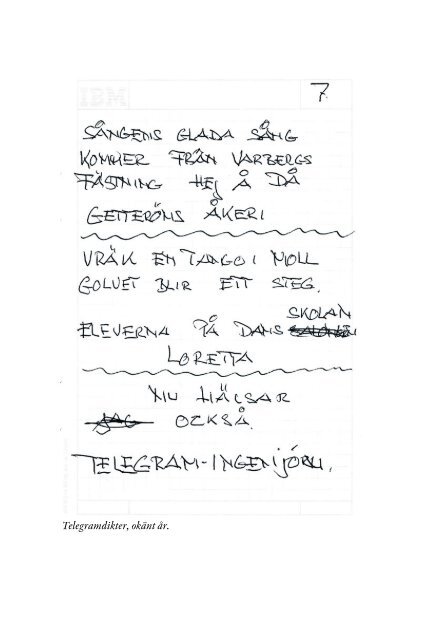 IBM
7
SÅNGENS GLADA SÅNG
KOMMER FRÅN VARBERGS
FÄSTNING HEJ Å DÅ
GETTERÖNS ÅKERI
VRÅK EN TANGO I MOLL
GOLVET BLIR ETT STEG.
SKOLAN
ELEVERNA PÅ DANS
LORETTA
NU HÄLSAR
JAG OCKSÅ.
TELEGRAM-INGENJÖRN.
Telegramdikter, okänt år.